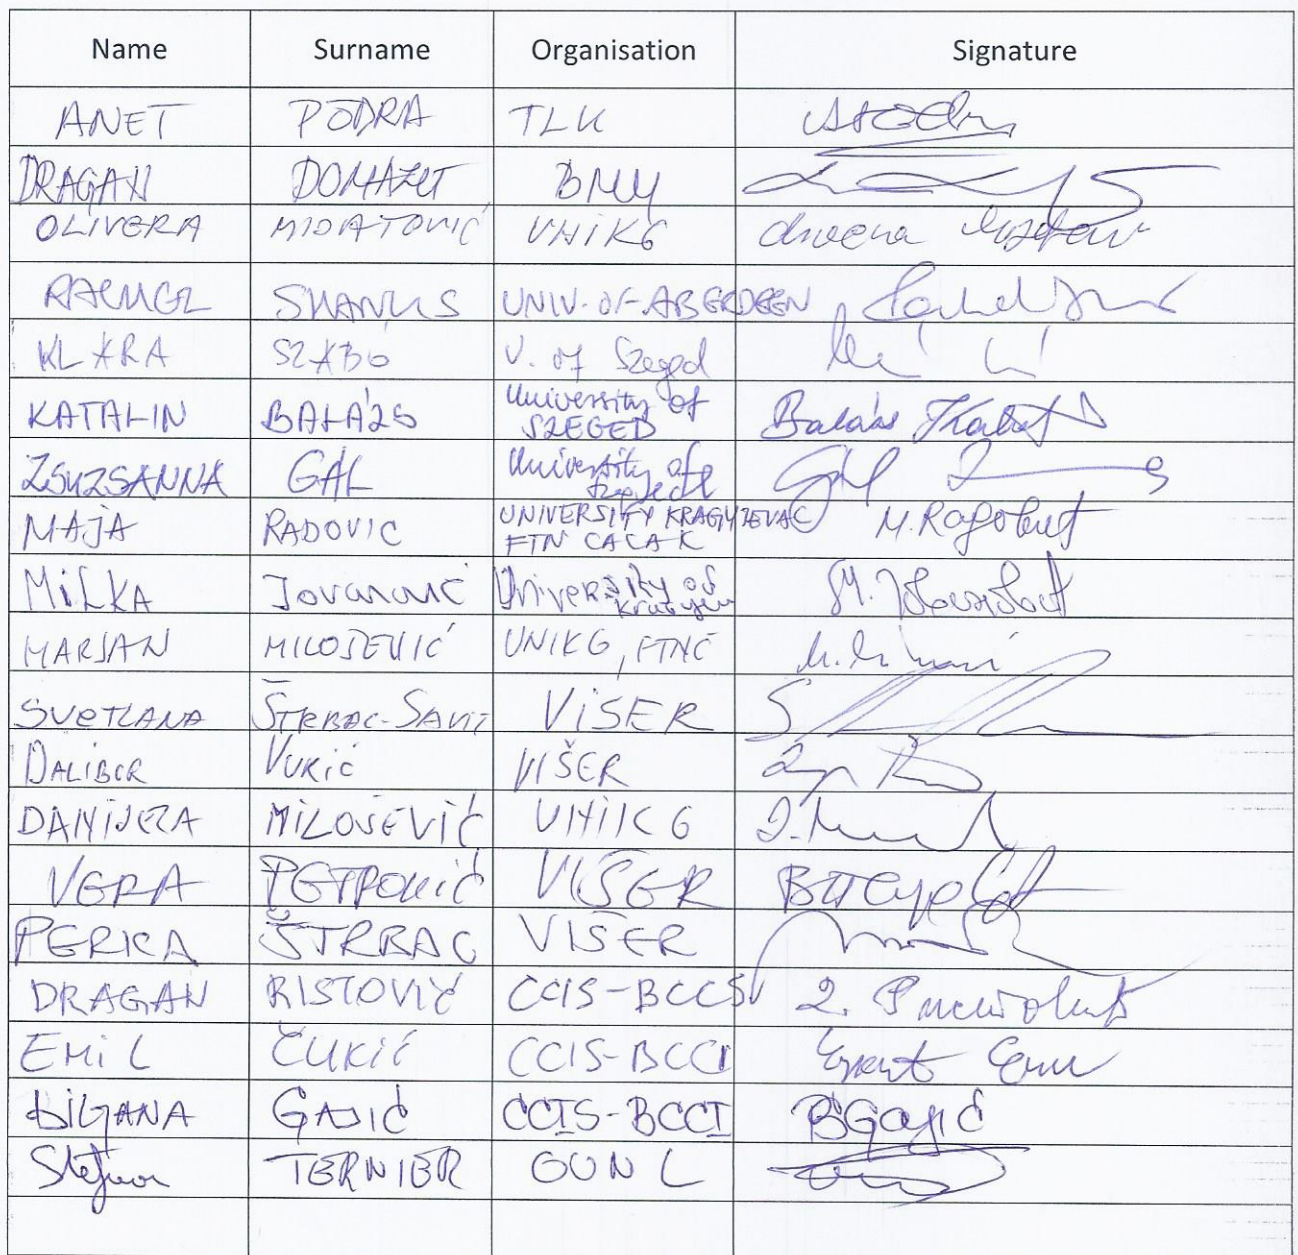 Name Surname Organisation Signature
ANET PODRA TLU
DRAGAN DOMAZET BMU
OLIVERA MIJATOVIĆ UNIKG
RACHEL SHANKS UNIV. OF ABERDEEN
KLÁRA SZABÓ U. of Szeged
KATALIN BALÁZS University of SZEGED Balázs Katalin
ZSUZSANNA GÁL University of Szeged Gál
MAJA RADOVIC UNIVERSITY KRAGUJEVAC FTN CACAK M.
MILKA Jovanović University of Kragujevac M.
MARJAN MILOŠEVIĆ UNIKG, FTNČ
SVETLANA ŠTRBAC-SAVIĆ VIŠER
DALIBOR VUKIĆ VIŠER
DANIJELA MILOŠEVIĆ UNIKG
VERA PETROVIĆ VIŠER
PERICA ŠTRBAC VIŠER
DRAGAN RISTOVIĆ CCIS-BCCSV
EMIL ČUKIĆ CCIS-BCCI
BILJANA GAJIĆ CCIS-BCCI BGajić
Stefaan TERNIER OUNL